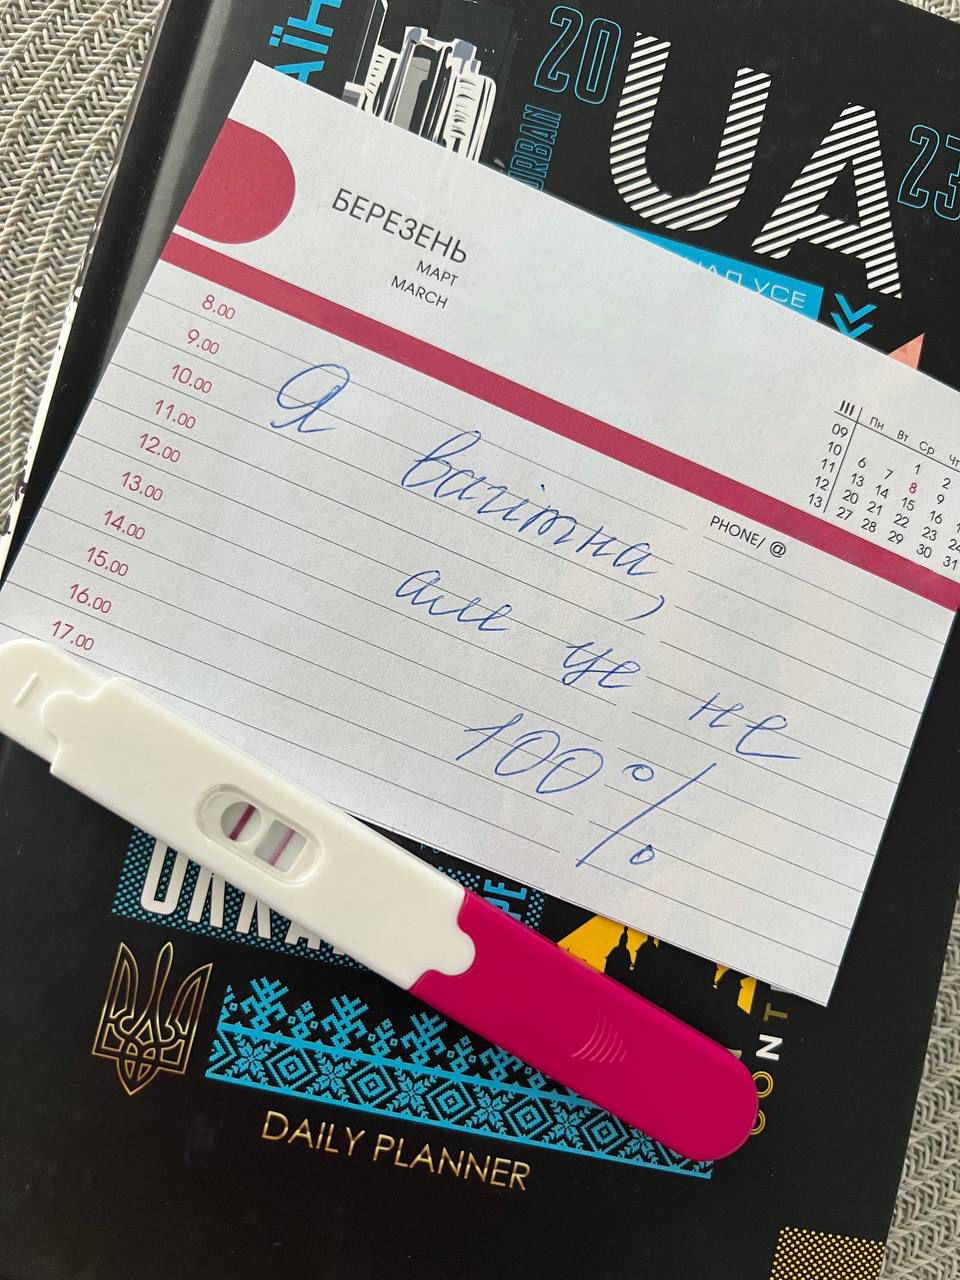 АЇН
URBAN
20
UA
23
НАД УСЕ
БЕРЕЗЕНЬ
МАРТ
MARCH
III Пн Вт Ср Чт
09 1 2
10 6 7 8 9
11 13 14 15 16
12 20 21 22 23 24
13 27 28 29 30 31
PHONE/ @
8.00
9.00
10.00
11.00
12.00
13.00
14.00
15.00
16.00
17.00
Я
вагітна,
але це не
100%
DAILY PLANNER